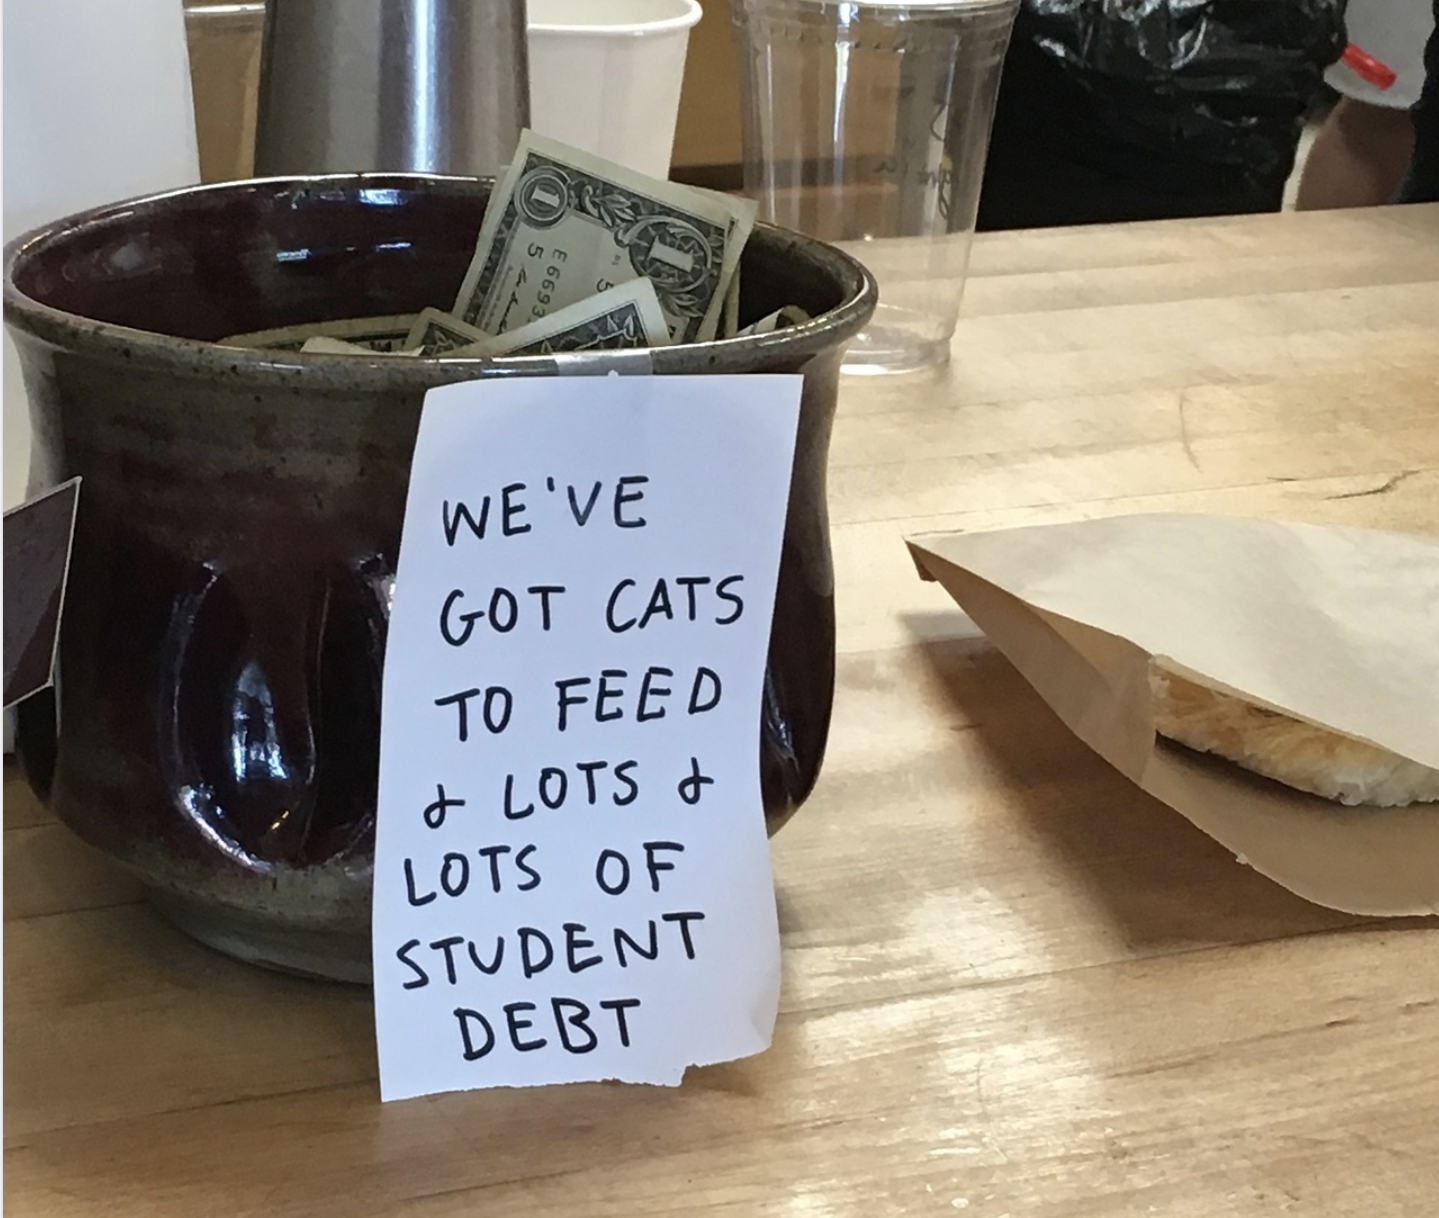 WE'VE
GOT CATS
TO FEED
& LOTS &
LOTS OF
STUDENT
DEBT
1
1